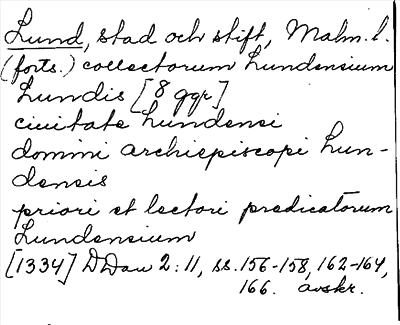 Lund, stad och stift, Malm. l.
(forts.) collectorum Lundensium
Lundis [8 ggr]
ciuitate Lundensi
domini archiepiscopi Lun-
densis
priori et lectori predicatorum
Lundensium
[1334] DDan 2:11, ss. 156-158, 162-164,
166. avskr.